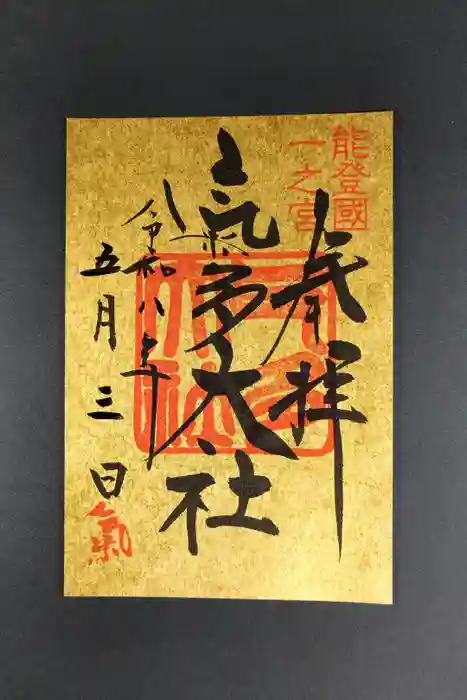 能登國
一之宮
奉拝
氣多大社
令和八年
五月三日
氣